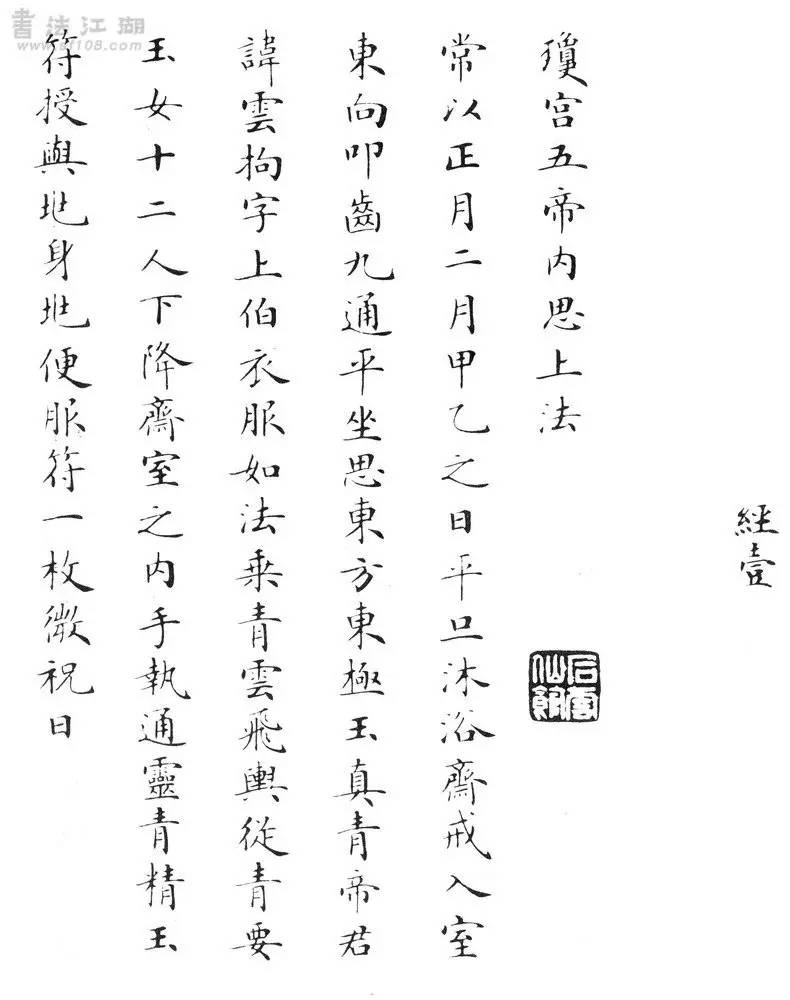 書法江湖
www.sf108.com
經壹
瓊宮五帝內思上法
常以正月二月甲乙之日平旦沐浴齋戒入室
東向叩齒九通平坐思東方東極玉真青帝君
諱雲拘字上伯衣服如法乘青雲飛輿從青要
玉女十二人下降齋室之內手執通靈青精玉
符授與兆身兆便服符一枚微祝曰